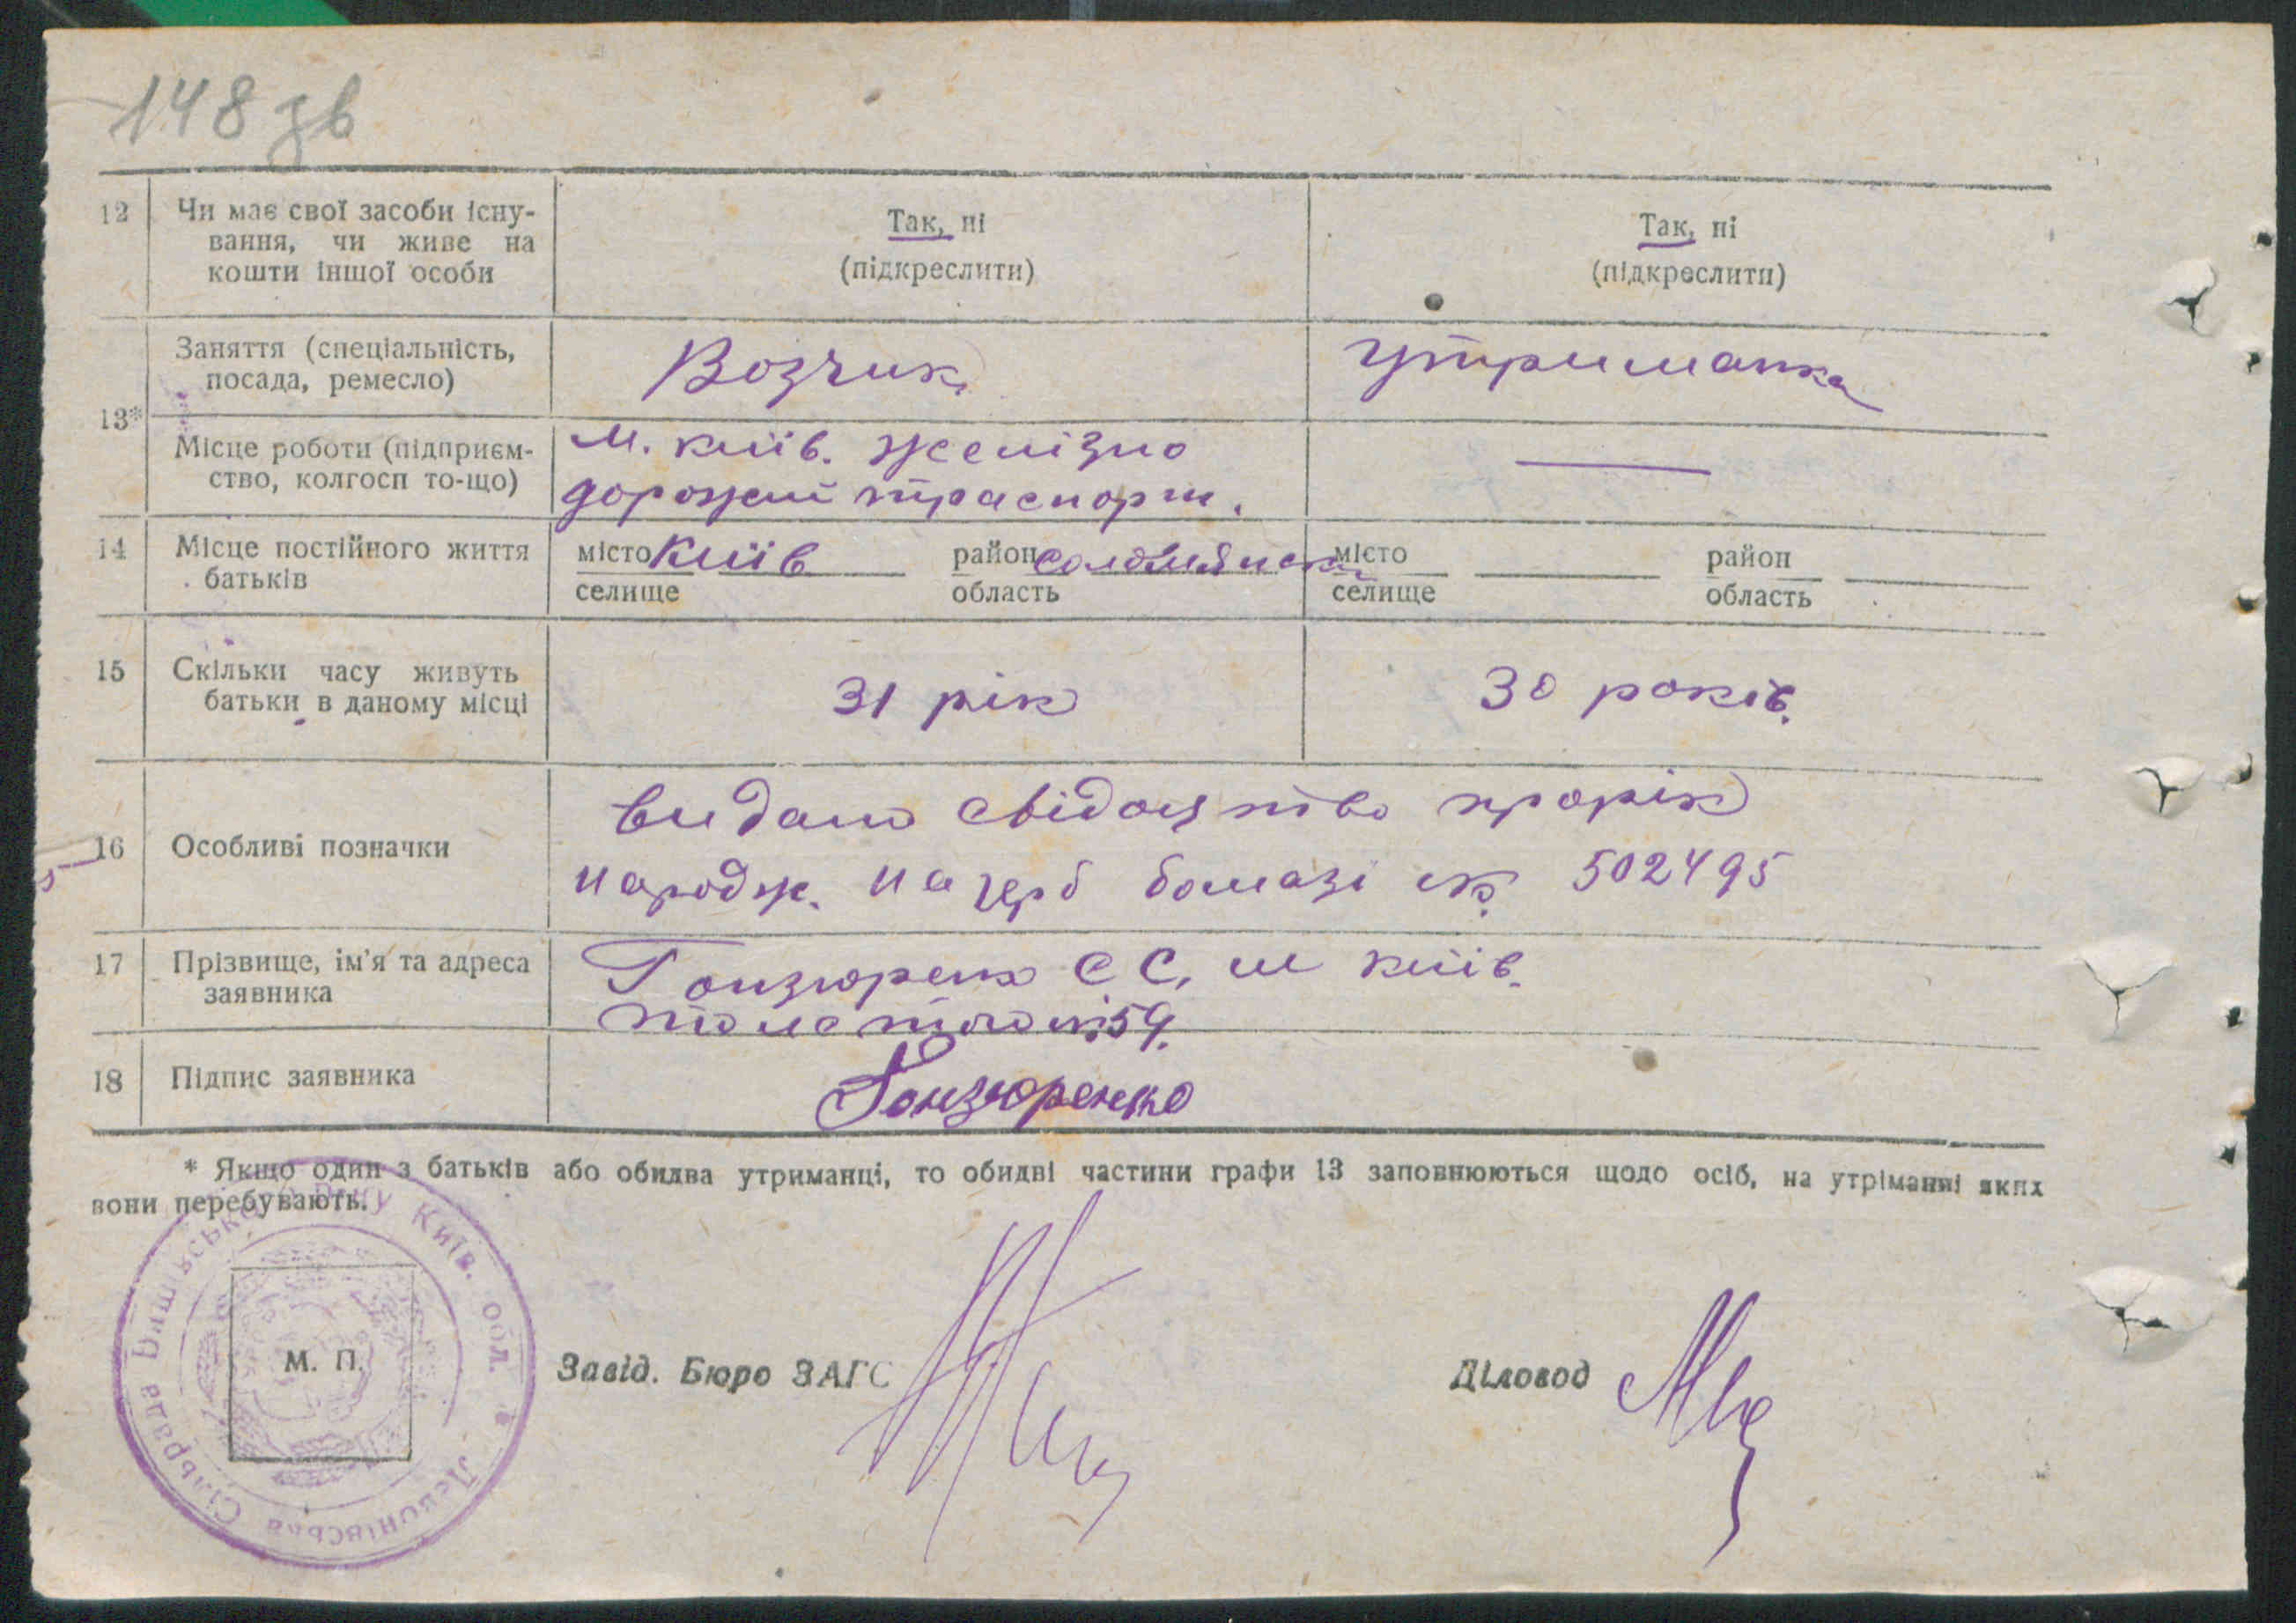 148 зв
12 Чи має свої засоби існу-
вання, чи живе на
кошти іншої особи
Так, ні
(підкреслити)
Так, ні
(підкреслити)
13*
Заняття (спеціальність,
посада, ремесло)
Возчик
утриманка
Місце роботи (підприєм-
ство, колгосп то-що)
м. Київ. желізно
дорожній траспорт.
—
14 Місце постійного життя
батьків
місто Київ район
селище область
місто район
селище область
15 Скільки часу живуть
батьки в даному місці
31 рік
30 років.
16 Особливі позначки
видано свідоцтво
народж. на герб бомазі № 502495
17 Прізвище, ім'я та адреса
заявника
Гонзюренко С С. м Київ.
№ 59.
18 Підпис заявника
Гонзюренко
* Якщо один з батьків або обидва утриманці, то обидві частини графи 13 заповнюються щодо осіб, на утріманні яких
вони перебувають.
Київ. обл.
Сільрада
М. П.
Завід. Бюро ЗАГС
Діловод